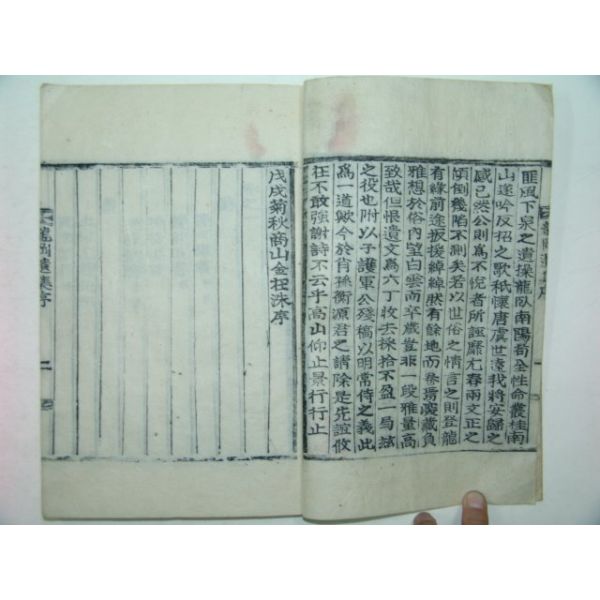 匪風下泉之遺操龍臥南陽苟全性命叢桂南
山遂吟反招之歌秖懷唐虞世遠我將安歸之
感已然公則爲不悅者所誣靡尤春兩文正之
傾倒幾陷不測矣若以世俗之情言之則登龍
有緣前途扳援綽綽然有餘地而養晦藏負
雅想於俗內望白雲而卒歲豈非一段雅量高
致哉但恨遺文爲六丁收去採拾不盈一局
之役也附以子護軍公殘稿以明常侍之義此
爲一道歟今於肖孫衡源君之請除是先誼敢
在不敢強謝詩不云乎高山仰止景行行止
戊戌菊秋商山金在洙序
龍岡遺集序
二